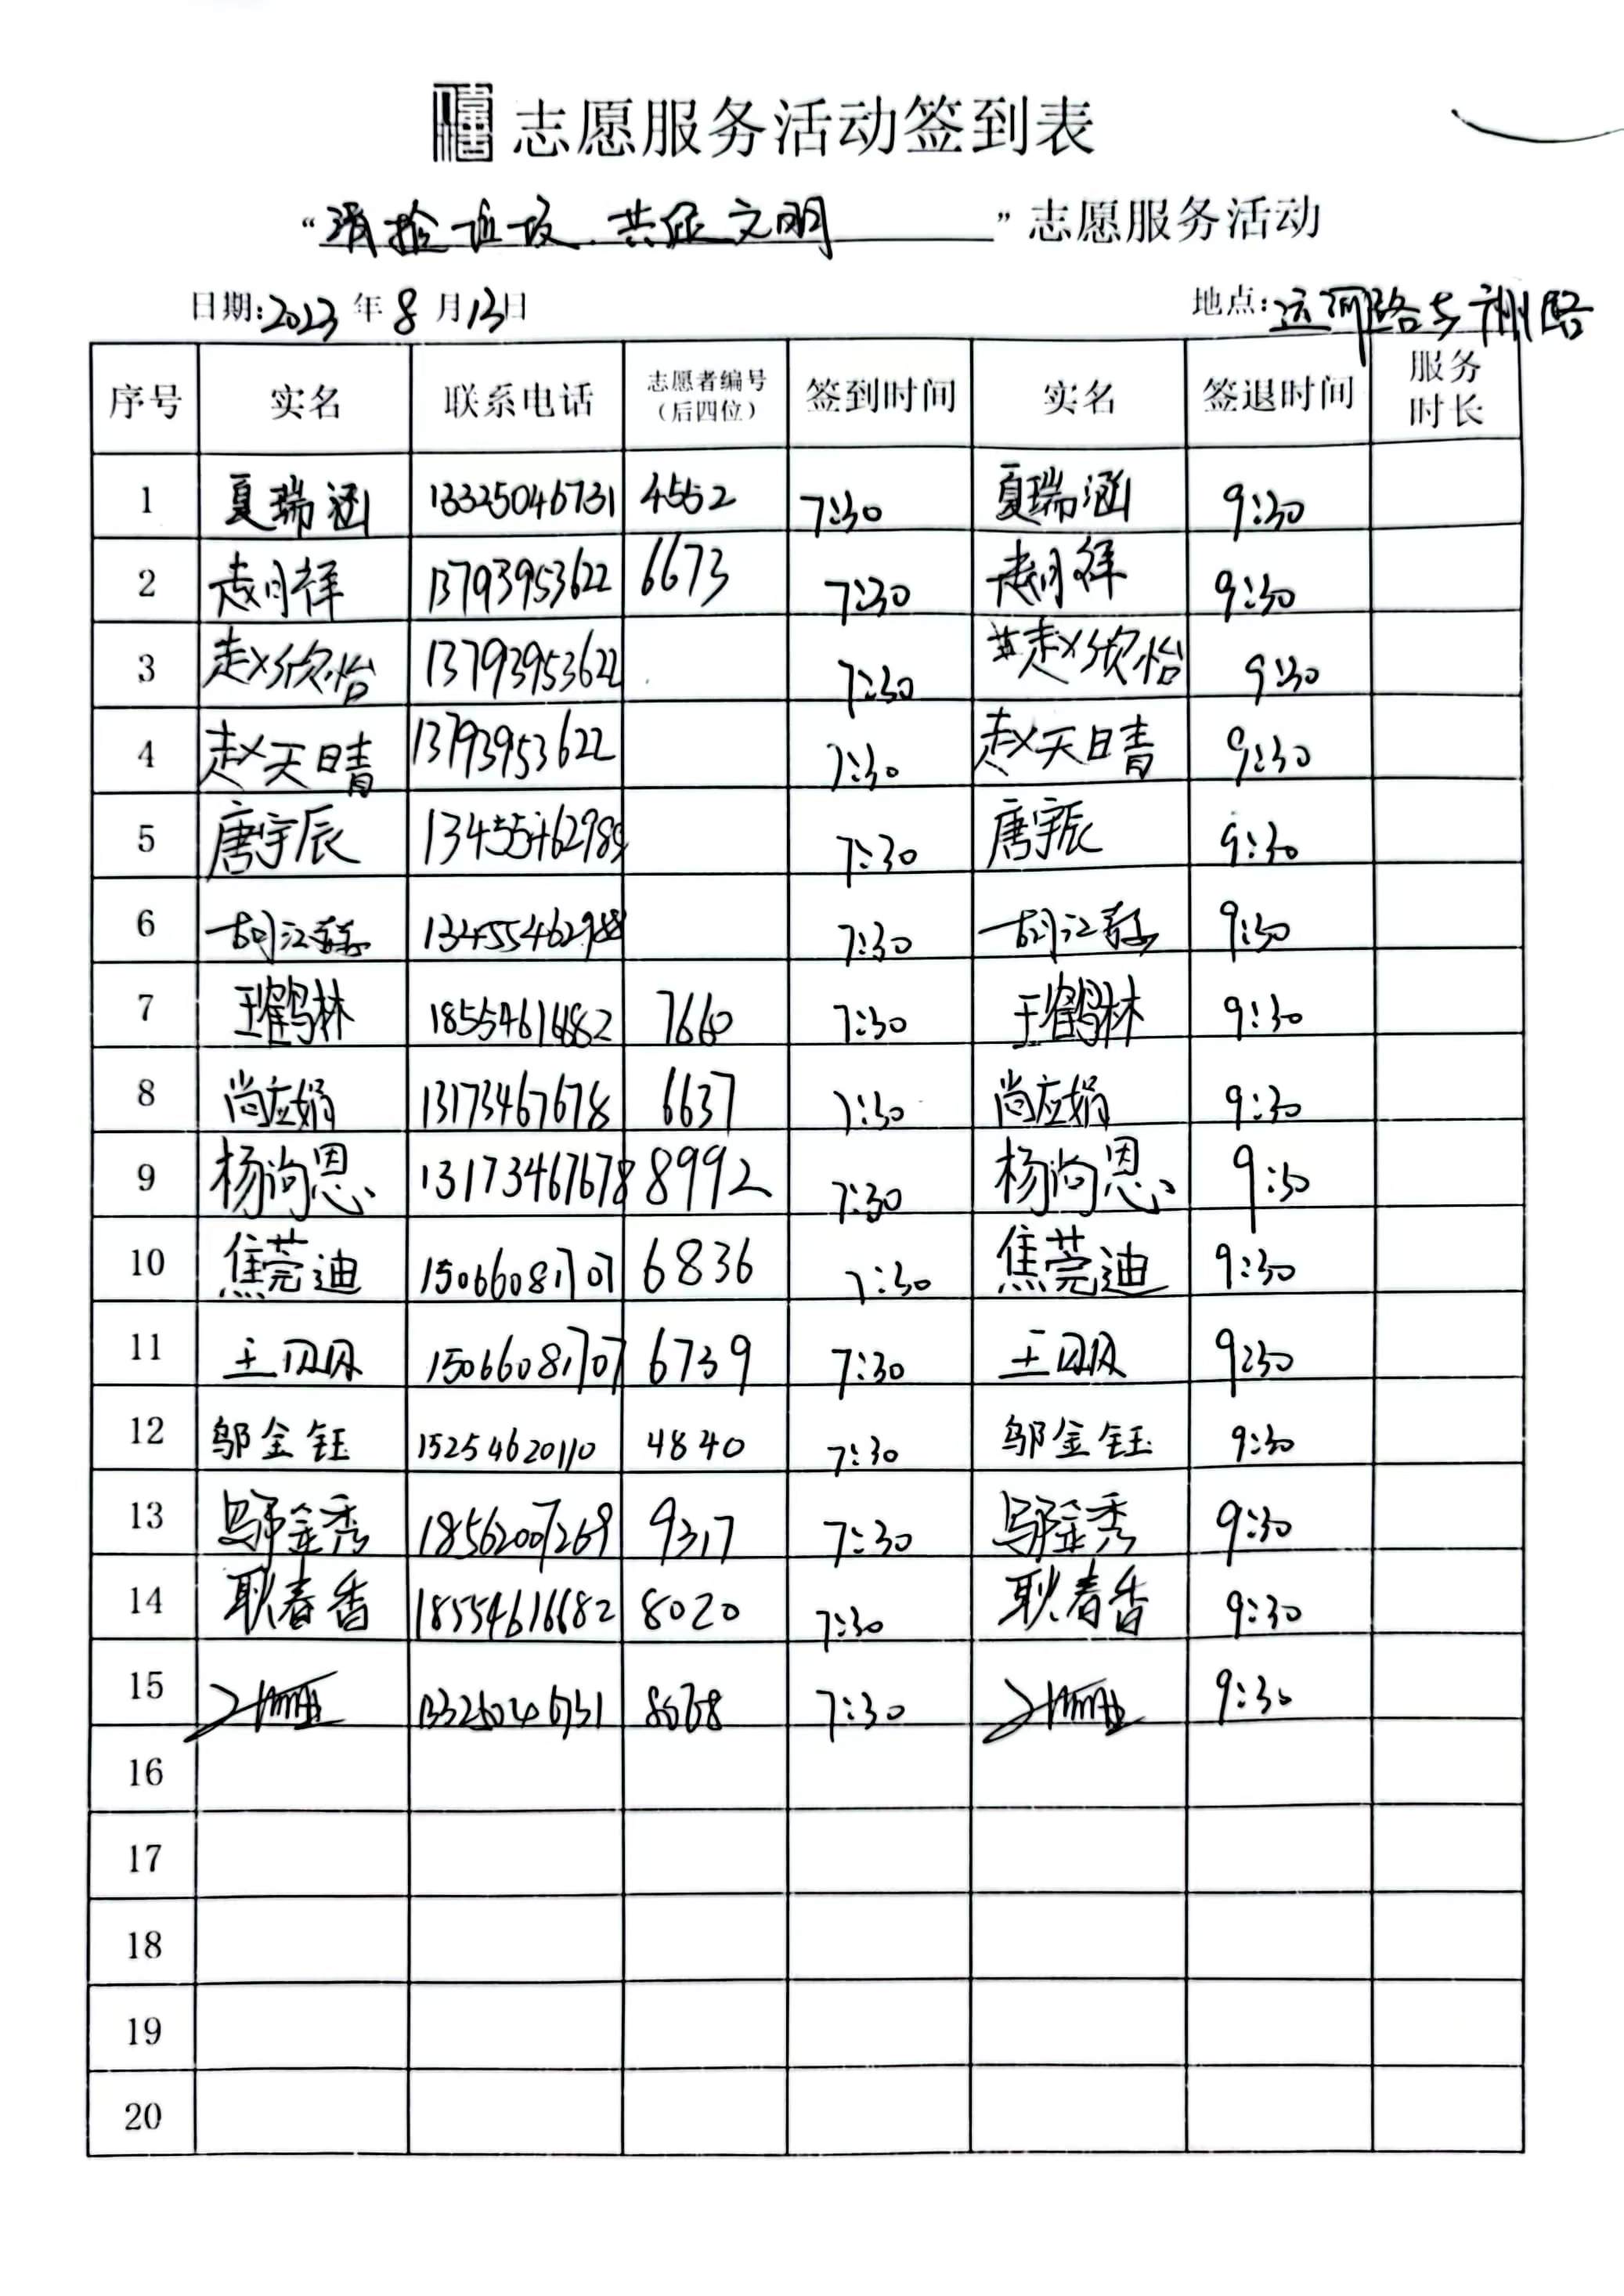 志愿服务活动签到表
“清捡垃圾.共促文明”志愿服务活动
日期:2023年8月13日 地点:运河路与 州路
序号 实名 联系电话 志愿者编号(后四位) 签到时间 实名 签退时间 服务时长
1 夏瑞涵 13325046731 4552 7:30 夏瑞涵 9:30
2 赵月祥 13793953622 6673 7:30 赵月祥 9:30
3 赵欣怡 13793953622 7:30 赵欣怡 9:30
4 赵天晴 13793953622 7:30 赵天晴 9:30
5 唐宇辰 13455462989 7:30 唐宇辰 9:30
6 胡江 7:30 胡江 9:30
7 王鹤林 18554616682 7660 7:30 王鹤林 9:30
8 尚应娟 13173467678 6637 7:30 尚应娟 9:30
9 杨尚恩 13173467678 8992 7:30 杨尚恩 9:30
10 焦莞迪 15066081707 6836 7:30 焦莞迪 9:30
11 王贝贝 15066081707 6739 7:30 王贝贝 9:30
12 邬金钰 15254620110 4840 7:30 邬金钰 9:30
13 邬金秀 18562007269 9317 7:30 邬金秀 9:30
14 耿春香 18554616682 8020 7:30 耿春香 9:30
15 13325046731 7:30 9:30
16
17
18
19
20